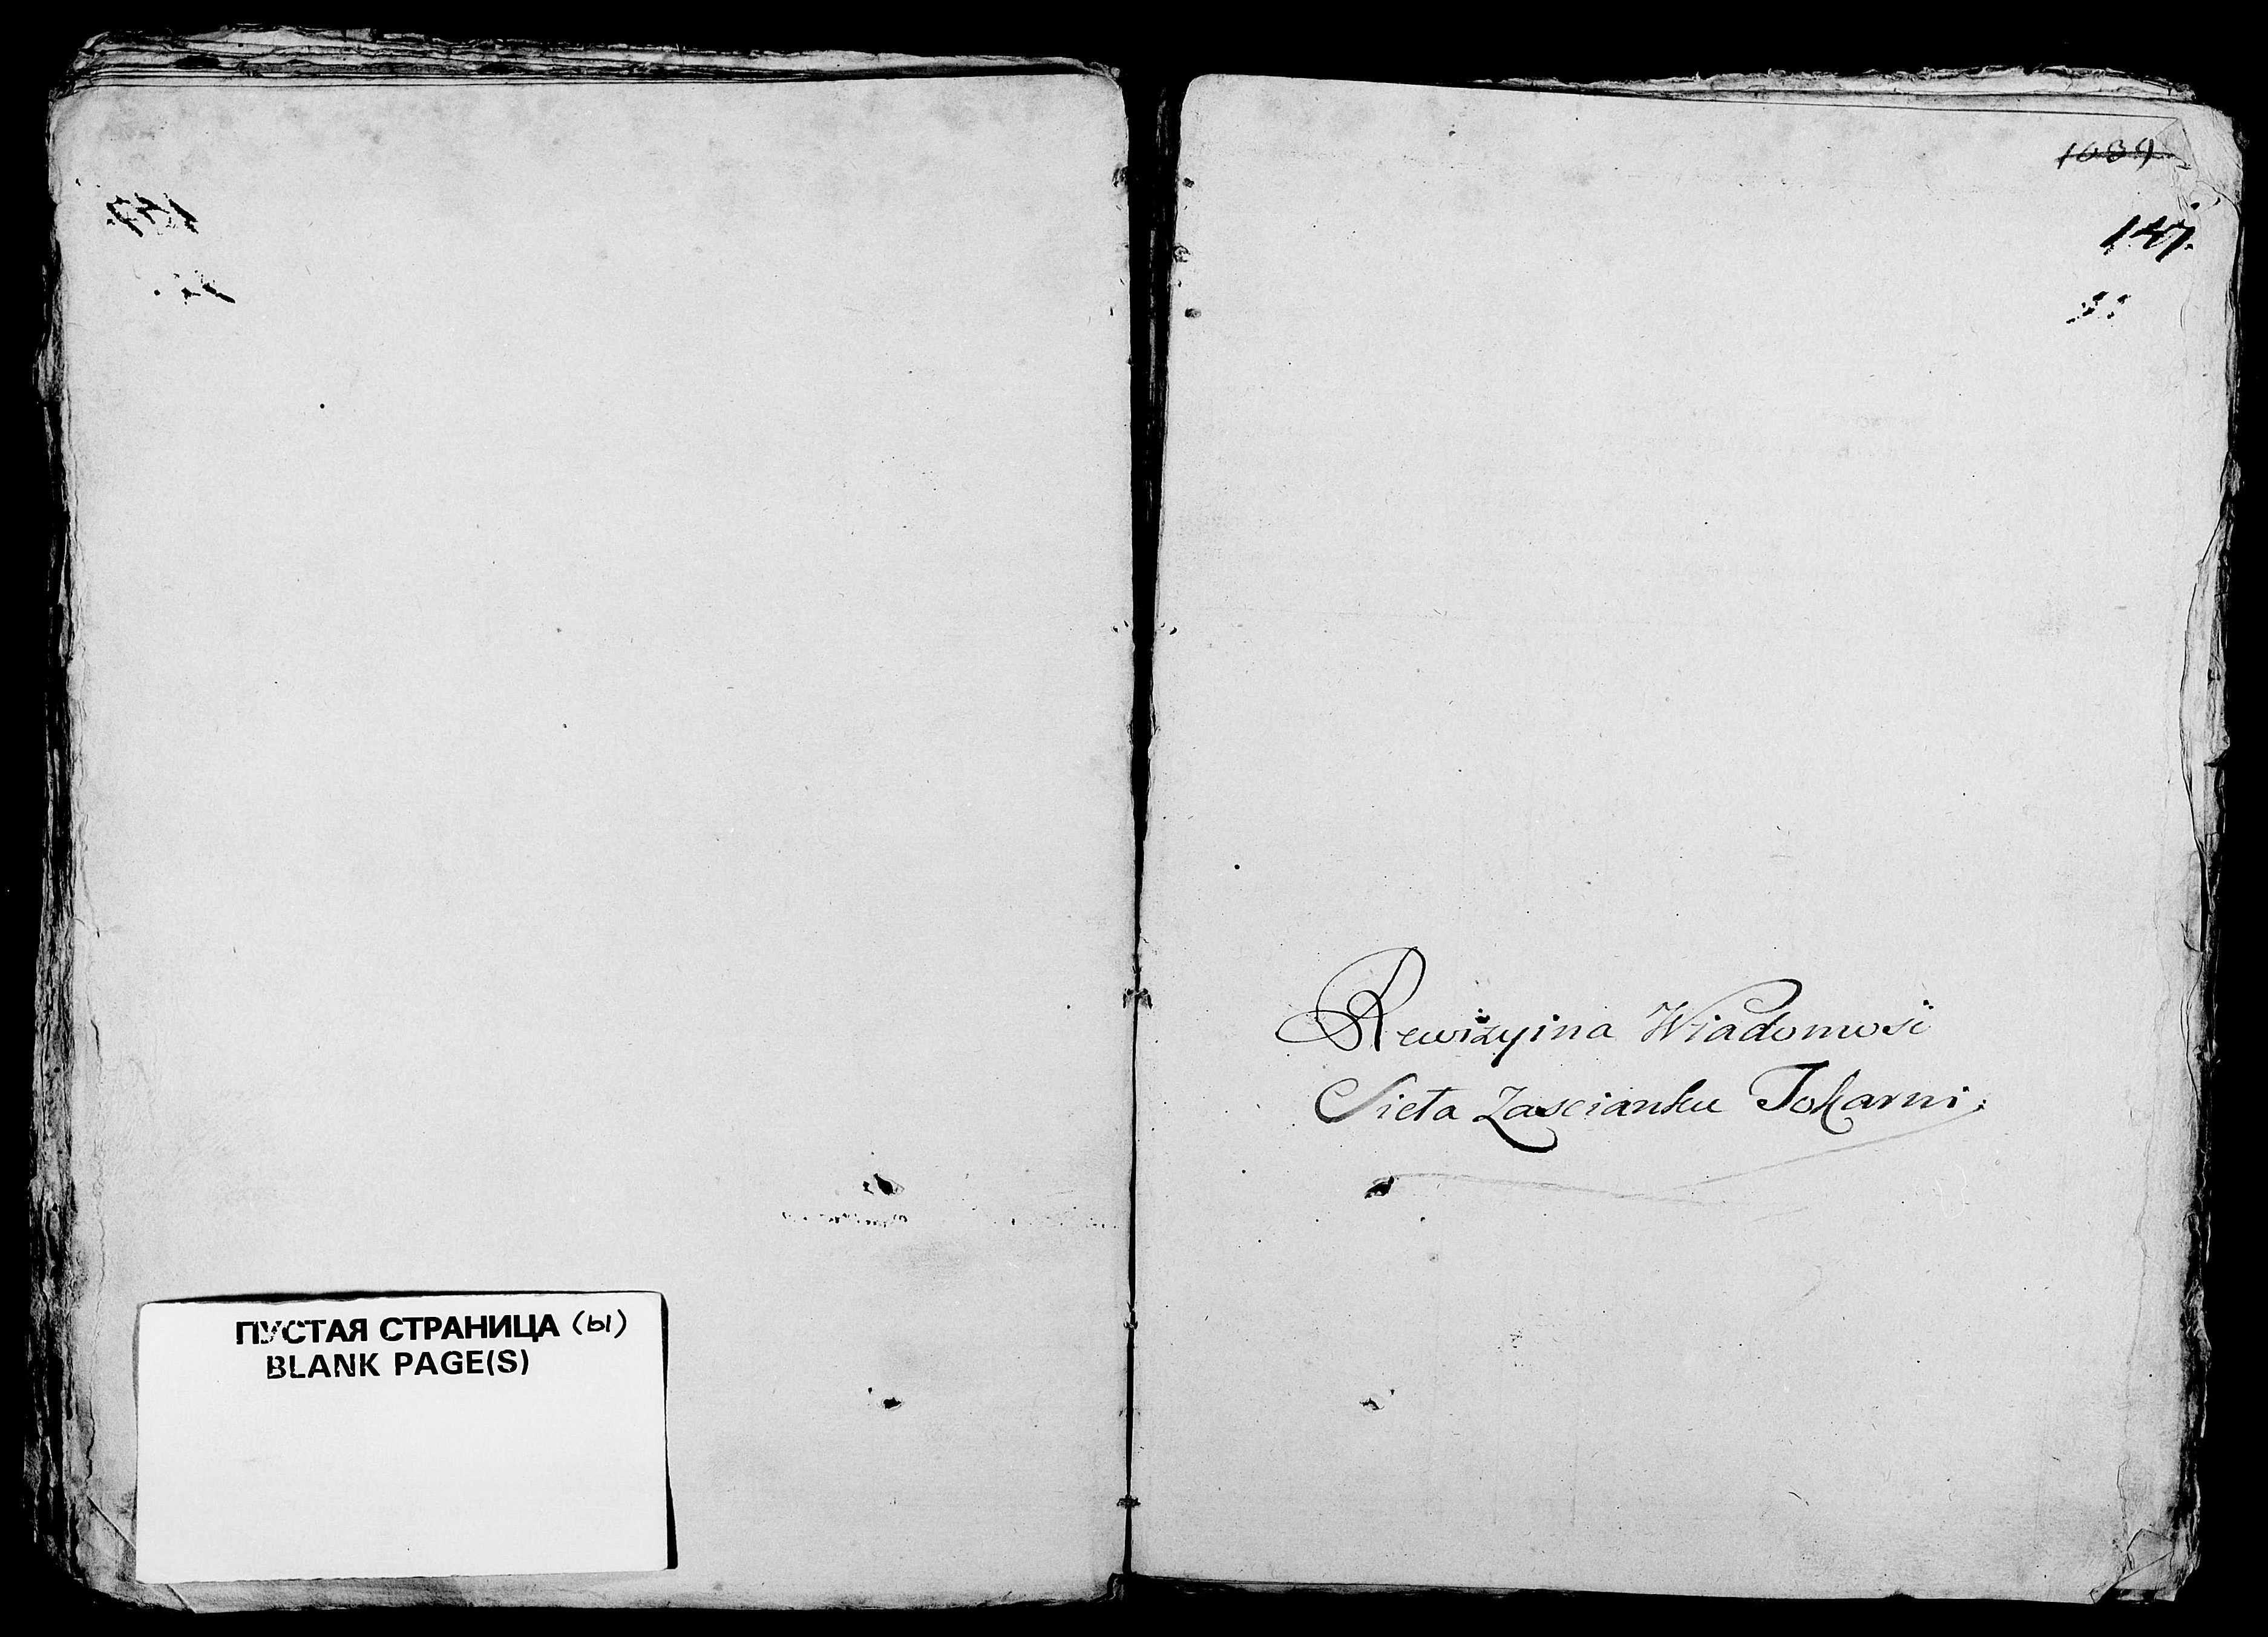 ПУСТАЯ СТРАНИЦА (Ы)
BLANK PAGE(S)
1039
147.
Rewizyina Wiadomość
Sieła Zascianku Tokarni